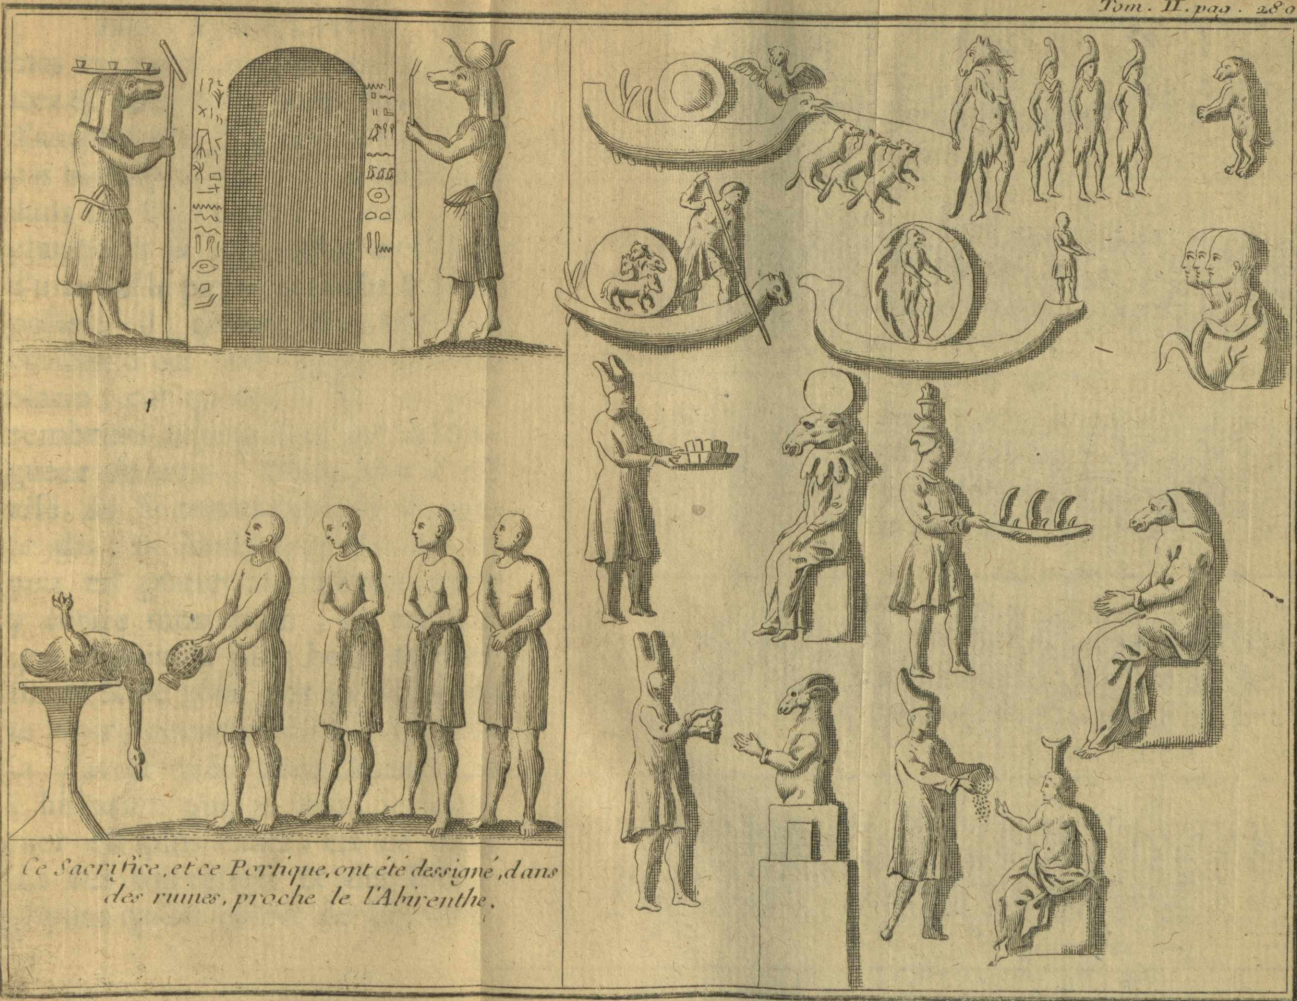 Tom. II. pag. 280
Ce Sacrifice, et ce Portique, ont été dessigné, dans
des ruines, proche le l'Abirenthe.